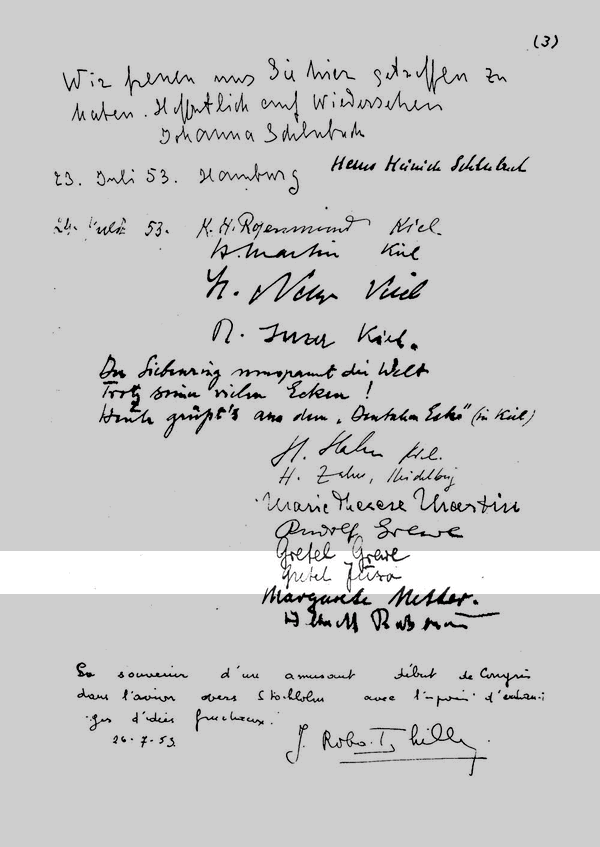 (3)
Wir freuen uns Sie hier getroffen zu
haben. Hoffentlich auf Wiedersehen
Johanna Schlubach
Hans Heinrich Schlubach
23. Juli 53. Hamburg
24. Juli 53. K. H. Kiel.
H. Martin Kiel
H. Kiel
R. Kiel.
Der Siebenring umspannt die Welt
Trotz seiner vielen Ecken!
Heute grüßt's aus dem „Deutschen Eck" (in Kiel)
H. Hahn Kiel.
H. Zahn, Heidelberg
Marie Therese Martin
Rudolf Grewe
Gretel Grewe
Gretel Juza
Margarete
En souvenir d'un amusant début de Congrès
dans l'avion vers Stockholm avec l'espoir d'échan-
ges d'idées fructueux.
26-7-53
J.